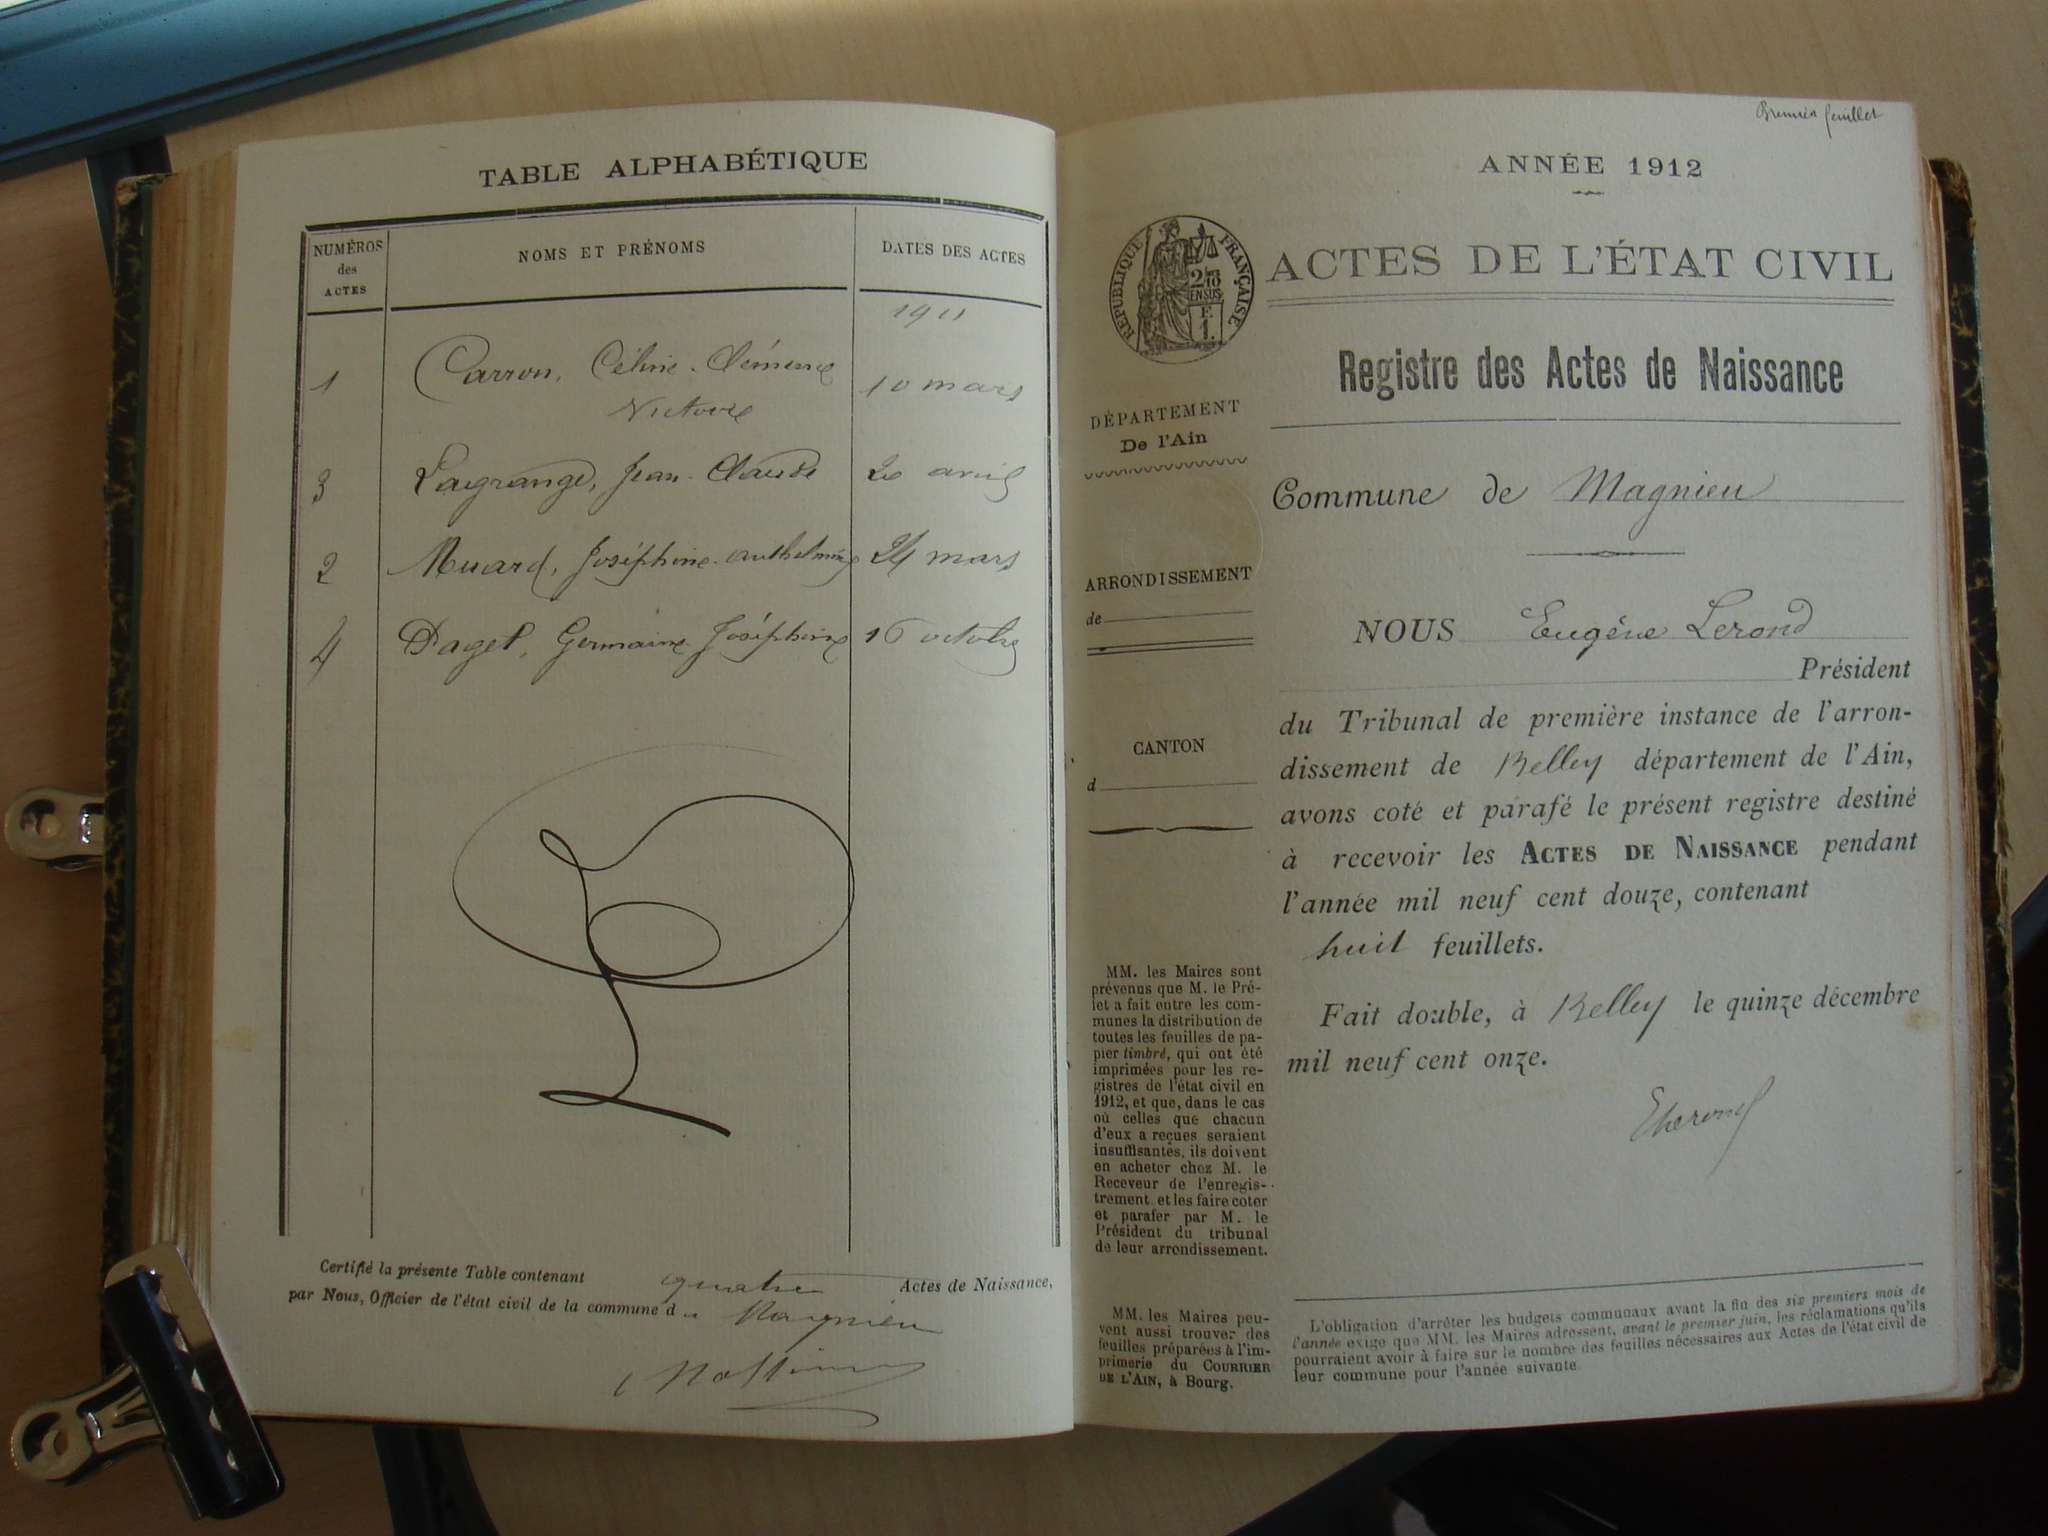 TABLE ALPHABÉTIQUE
NUMÉROS des ACTES
NOMS ET PRÉNOMS
DATES DES ACTES
1911
1 Carron, Céline Clémence 10 mars
Victoire
3 Lagrange, Jean-Claude 20 avril
2 Muard, Joséphine Anthelmine 24 mars
4 Paget, Germaine Joséphine 16 octobre
Certifié la présente Table contenant quatre Actes de Naissance,
par Nous, Officier de l'état civil de la commune de Magnieu
Premier feuillet
ANNÉE 1912
RÉPUBLIQUE FRANÇAISE
2/10
EN SUS
F.
1.
ACTES DE L'ÉTAT CIVIL
Registre des Actes de Naissance
DÉPARTEMENT
De l'Ain
ARRONDISSEMENT
de
CANTON
d
MM. les Maires sont
prévenus que M. le Pré-
et a fait entre les com-
munes la distribution de
toutes les feuilles de pa-
pier timbré, qui ont été
imprimées pour les re-
gistres de l'état civil en
1912, et que, dans le cas
où celles que chacun
d'eux a reçues seraient
insuffisantes, ils doivent
en acheter chez M. le
Receveur de l'enregis-
trement et les faire coter
et parafer par M. le
Président du tribunal
de leur arrondissement.
MM. les Maires peu-
vent aussi trouver des
feuilles préparées à l'im-
primerie du COURRIER
DE L'AIN, à Bourg.
Commune de Magnieu
NOUS Eugène Lerond
Président
du Tribunal de première instance de l'arron-
dissement de Belley département de l'Ain,
avons coté et parafé le présent registre destiné
à recevoir les ACTES DE NAISSANCE pendant
l'année mil neuf cent douze, contenant
huit feuillets.
Fait double, à Belley le quinze décembre
mil neuf cent onze.
L'obligation d'arrêter les budgets communaux avant la fin des six premiers mois de
l'année exige que MM. les Maires adressent, avant le premier juin, les réclamations qu'ils
pourraient avoir à faire sur le nombre des feuilles nécessaires aux Actes de l'état civil de
leur commune pour l'année suivante.